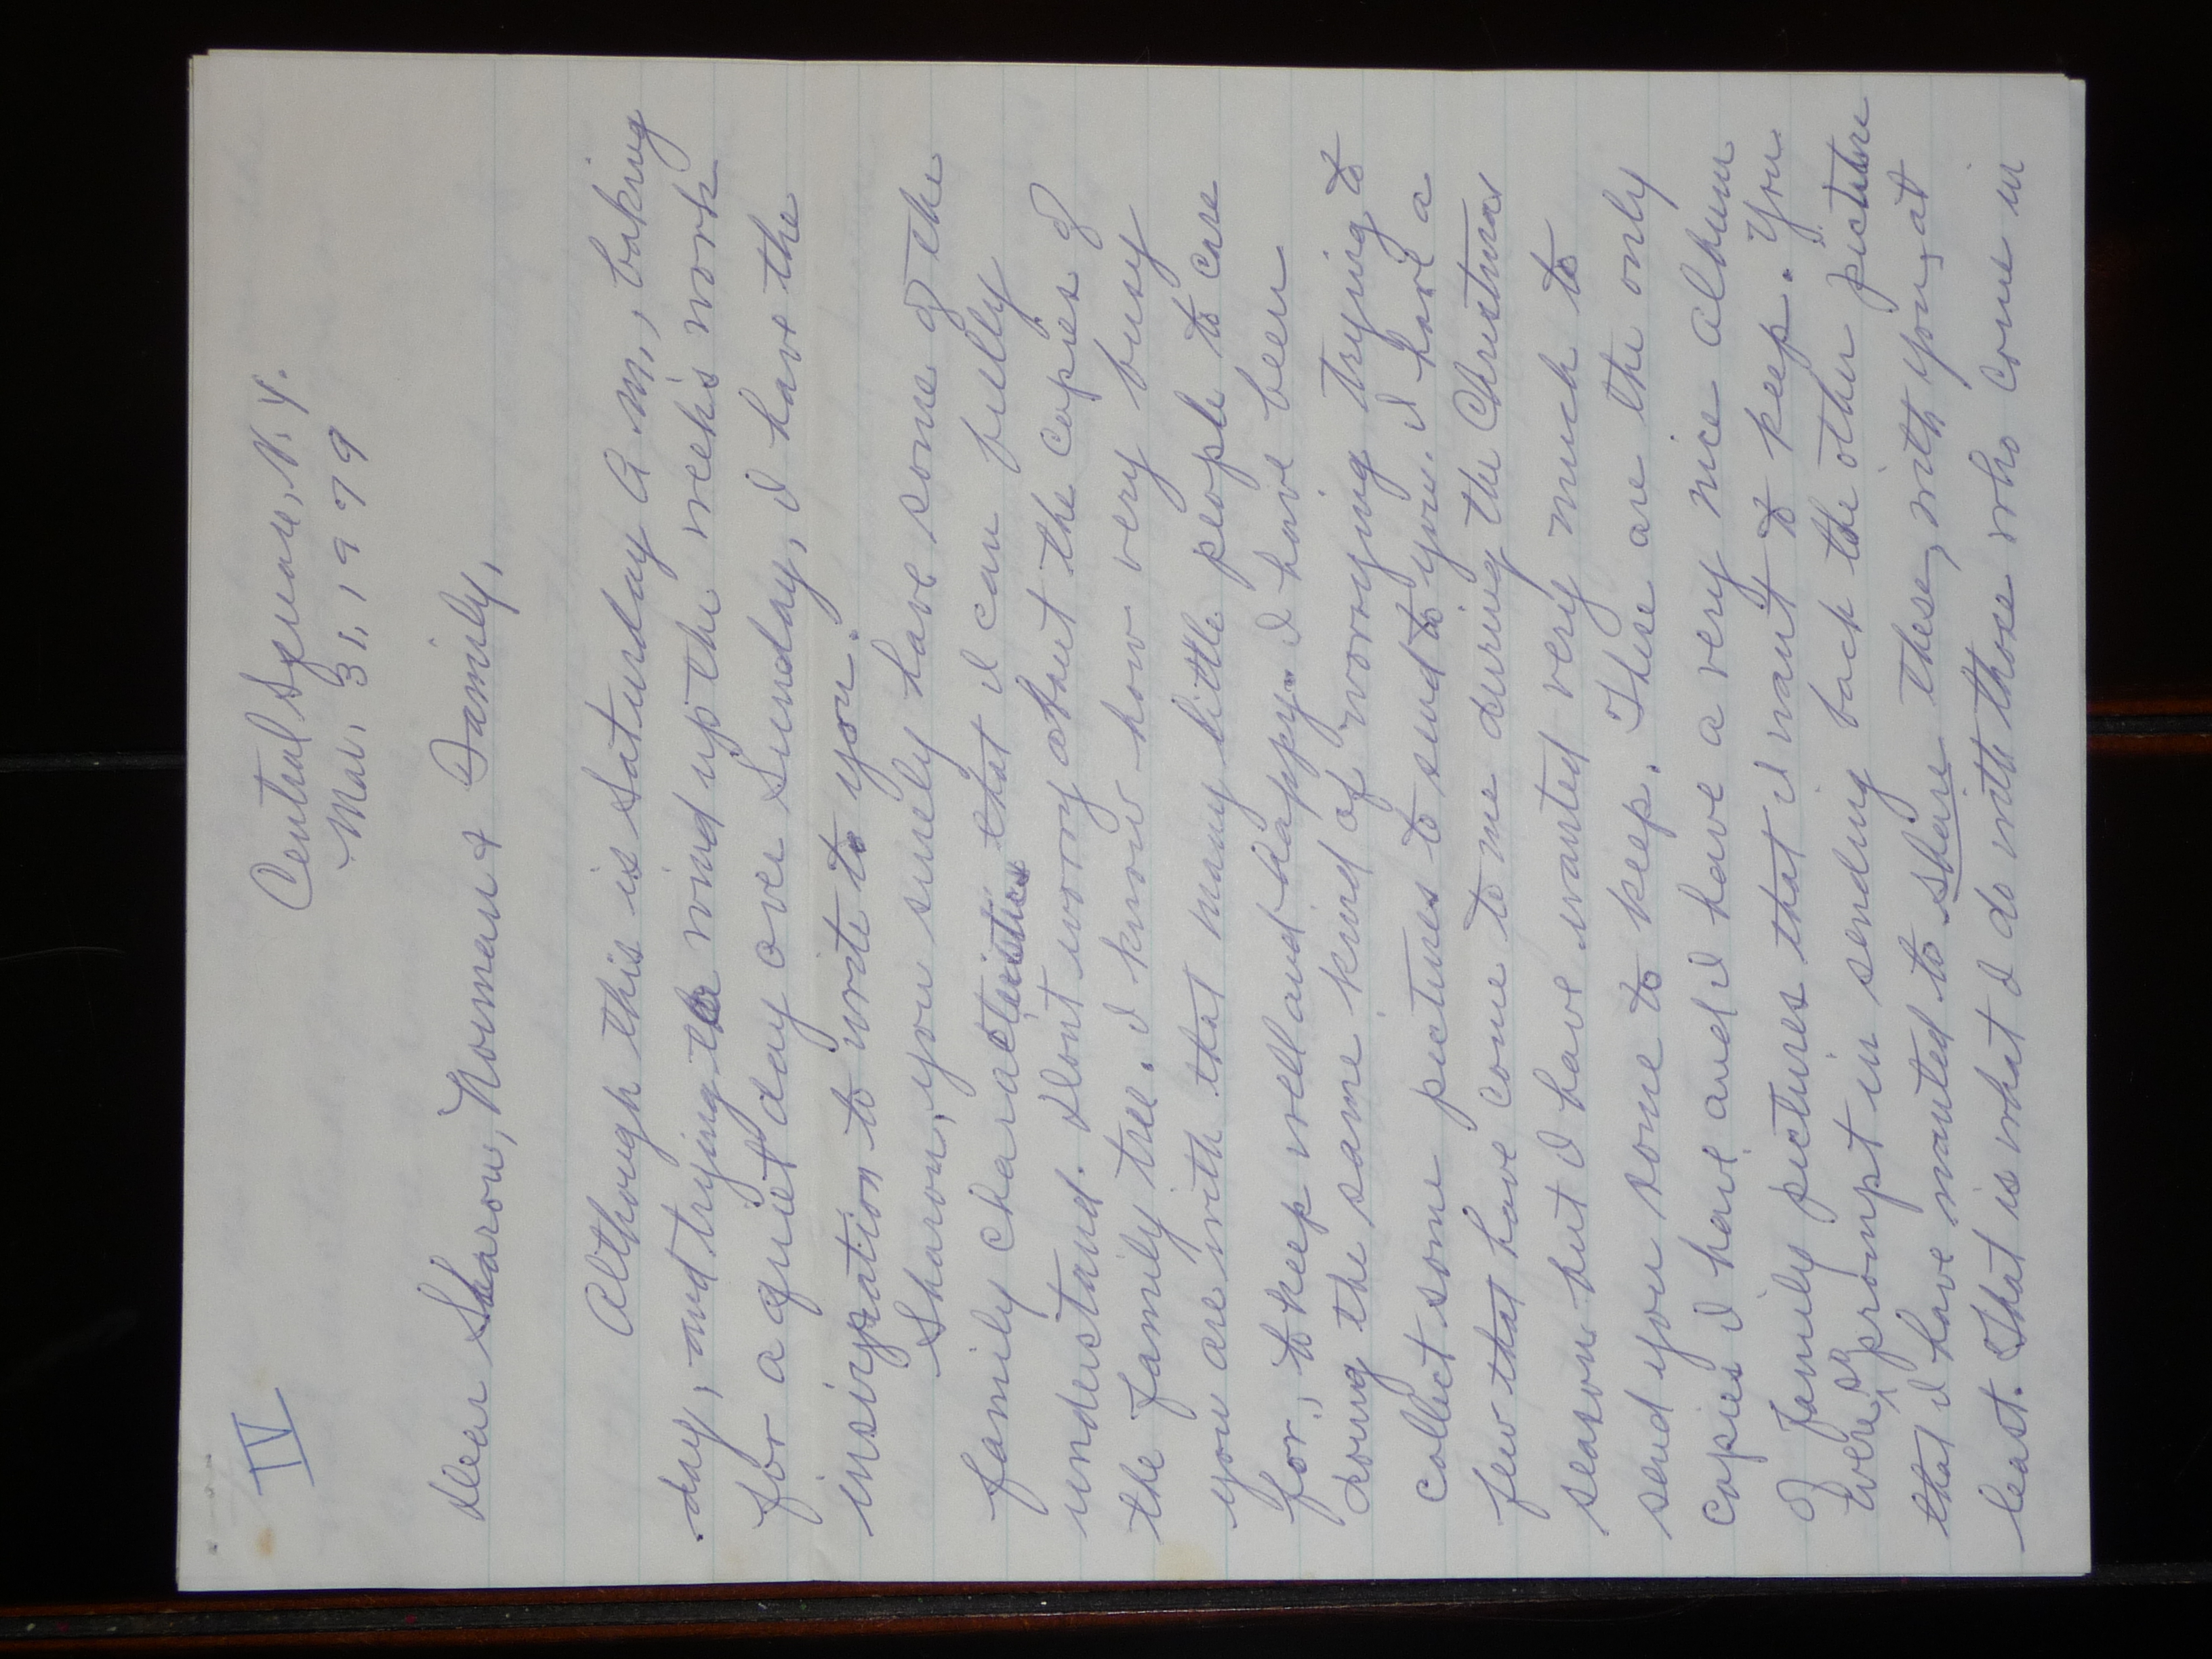 IV
Central Square, N.Y.
Mar. 31, 1979
Dear Sharon, Norman & Family,
Although this is Saturday A.M., baking
day, and trying to wind up the week's work
for a quiet day over Sunday, I have the
inspiration to write to you.
Sharon, you surely have some of the
family characteristics that I can fully
understand. Dont worry about the copies of
the family tree. I know how very busy
you are with that many little people to care
for, to keep well and happy. I have been
doing the same kind of worrying trying to
collect some pictures to send to you. I have a
few that have come to me during the Christmas
season but I have wanted very much to
send you some to keep. These are the only
copies I have and I have a very nice album
of family pictures that I want to keep. You
were so prompt in sending back the other picture
that I have wanted to share these, with you, at
least. That is what I do with those who come in